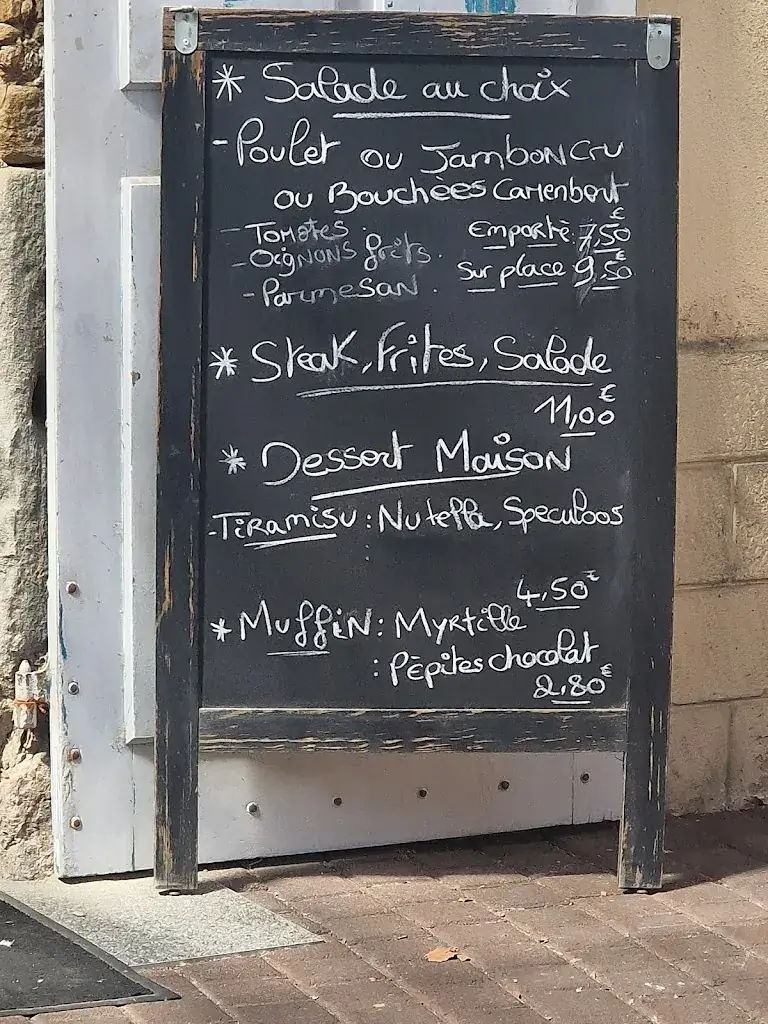 * Salade au choix
- Poulet ou Jambon Cru
ou Bouchèes Camenbert
- Tomates. Emportè 7,50€
- Oignons frits. Sur place 9,50€
- Parmesan.
* Steak, Frites, Salade
11,00€
* Dessert Maison
- Tiramisu : Nutella, Speculoos
4,50€
* Muffin : Myrtille
: Pèpites chocolat
2,80€